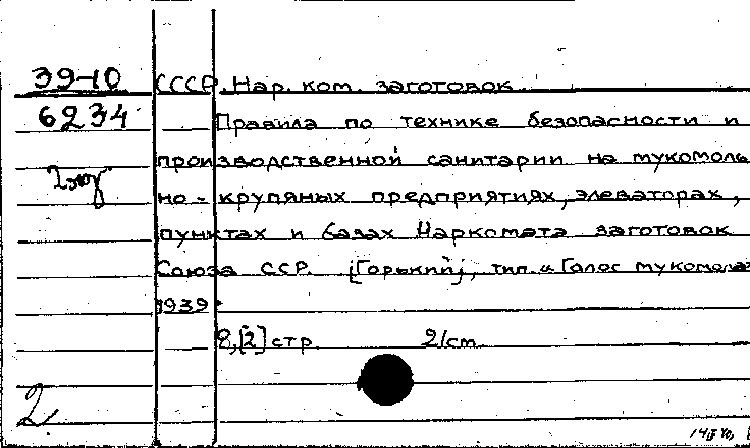 39-10 СССР. Нар. ком. заготовок
6234 Правила по технике безопасности и
производственной санитарии на мукомоль
2 экз
но - крупяных предприятиях, элеваторах,
пунктах и базах Наркомата заготовок
Союза ССР. [Горький], тип. "Голос мукомола"
1939.
8,[2] стр. 21 см.
2